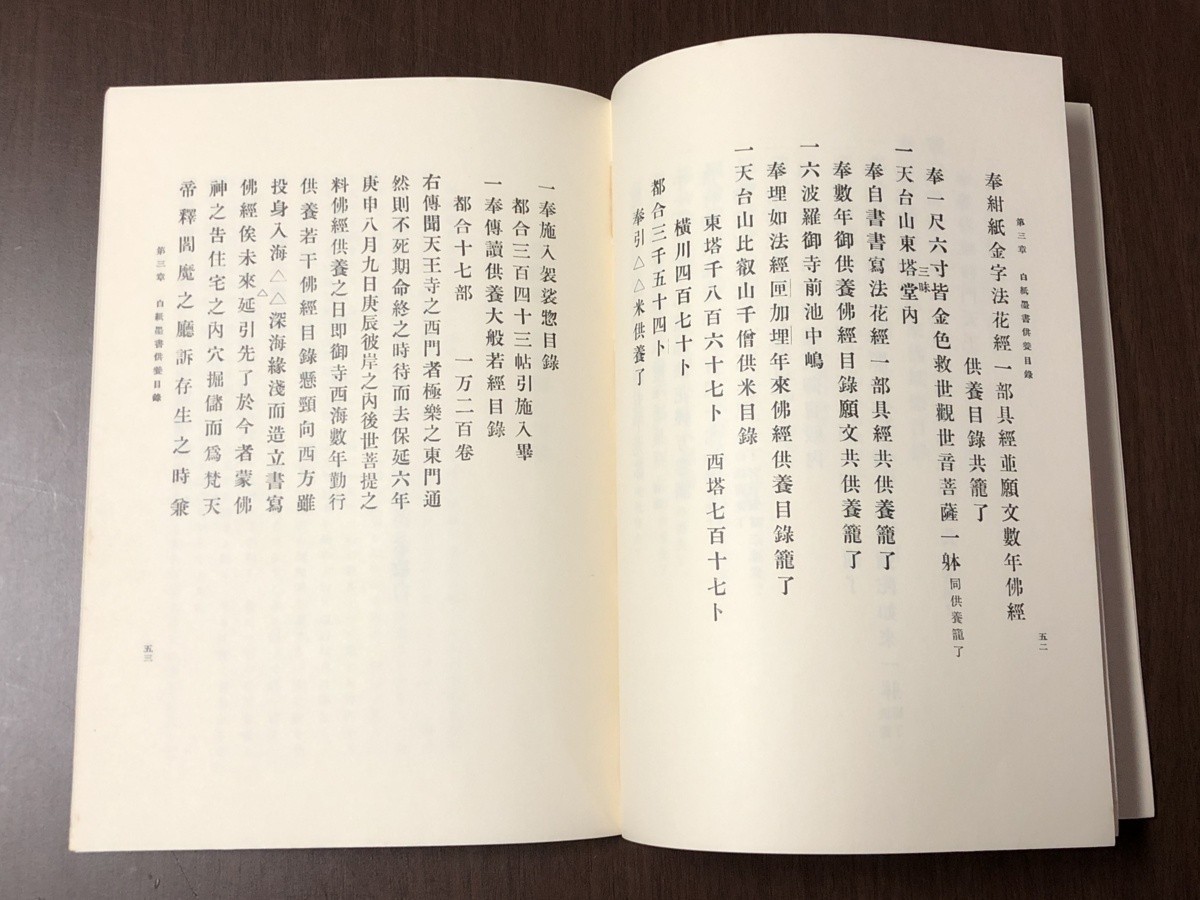 第三章　白紙墨書供養目錄
五二
奉紺紙金字法花經一部具經並願文數年佛經
供養目錄共籠了
奉一尺六寸皆金色救世觀世音菩薩一躰同供養籠了
一天台山東塔三昧堂內
奉自書書寫法花經一部具經共供養籠了
奉數年御供養佛經目錄願文共供養籠了
一六波羅御寺前池中嶋
奉埋如法經㔯加埋年來佛經供養目錄籠了
一天台山比叡山千僧供米目錄
東塔千八百六十七卜　西塔七百十七卜
橫川四百七十卜
都合三千五十四卜
奉引△△米供養了
一奉施入袈裟惣目錄
都合三百四十三帖引施入畢
一奉傳讀供養大般若經目錄
都合十七部　一万二百卷
右傳聞天王寺之西門者極樂之東門通
然則不死期命終之時待而去保延六年
庚申八月九日庚辰彼岸之內後世菩提之
料佛經供養之日卽御寺西海數年勤行
供養若干佛經目錄懸頸向西方雖
投身入海△△深海緣淺而造立書寫
佛經俟未來延引先了於今者蒙佛
神之告住宅之內穴掘儲而爲梵天△
帝釋閻魔之廳訴存生之時兼
第三章　白紙墨書供養目錄
五三